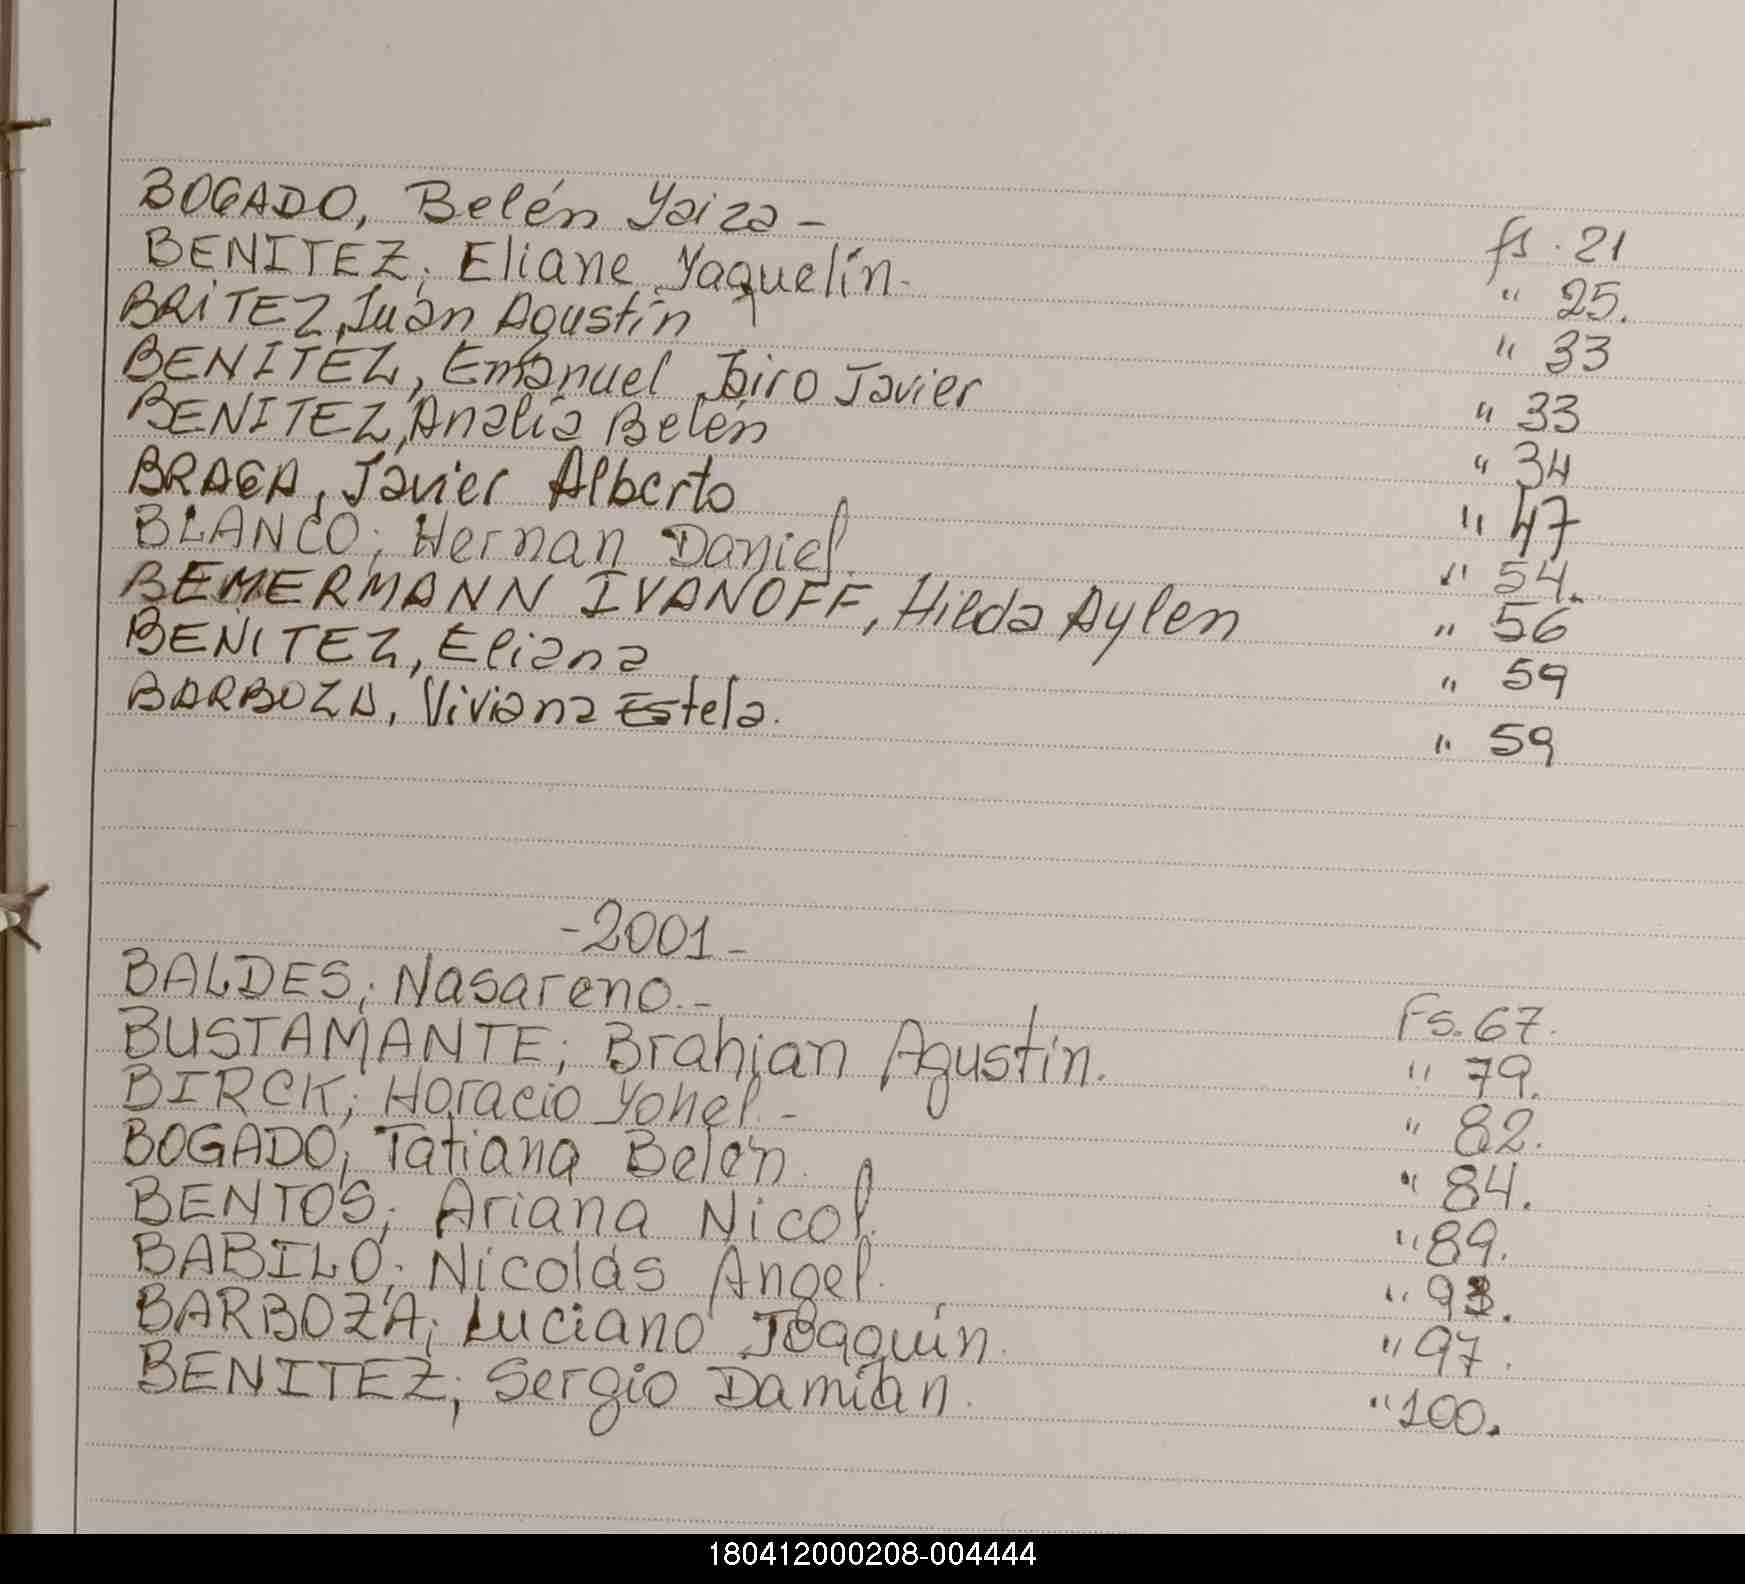 BOGADO, Belén Yaiza - fs. 21
BENITEZ; Eliane Yaquelín. " 25.
BRITEZ, Juan Agustín " 33
BENITEZ, Emanuel Jairo Javier " 33
BENITEZ, Analía Belén " 34
BRAGA, Javier Alberto " 47
BLANCO; Hernan Daniel. " 54.
BEMERMANN IVANOFF, Hilda Aylen " 56
BENITEZ, Eliana " 59
BARBOZA, Viviana Estela. " 59
-2001-
BALDES; Nasareno.- Fs. 67.
BUSTAMANTE; Brahian Agustín. " 79.
BIRCK; Horacio Yohel.- " 82.
BOGADO; Tatiana Belén. " 84.
BENTOS; Ariana Nicol. " 89.
BABILO; Nicolás Angel. " 93.
BARBOZA; Luciano Joaquín. " 97.
BENITEZ; Sergio Damián. " 100.
180412000208-004444